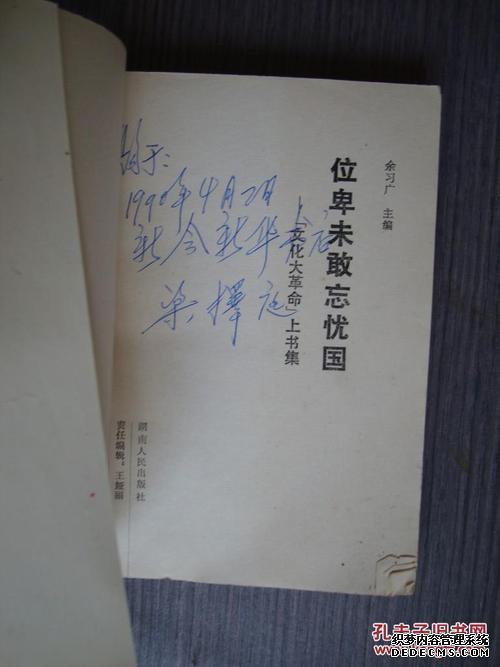 余习广 主编
位卑未敢忘忧国
「文化大革命」上书集
购于:
1990年4月2日
新会新华书店
湖南人民出版社
责任编辑:王娅丽
孔夫子旧书网
织梦内容管理系统
DEDECMS.COM